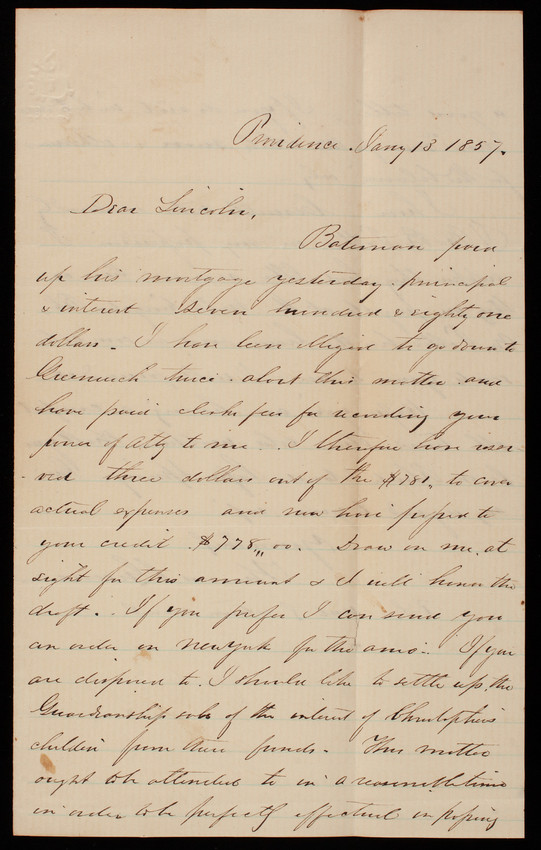 Providence. Jany 13 1857.
Dear Lincoln,
Bateman paid
up his mortgage yesterday. principal
& interest seven hundred & eighty one
dollars - I have been obliged to go down to
Greenwich twice. about this matter. and
have paid clerks fees for recording your
power of Atty to me. I therefore have reser-
ved three dollars out of the $781,, to cover
actual expenses and now have passed to
your credit $778,,00. Draw on me, at
sight for this amount & I will honor the
draft. If you prefer I can send you
an order on New York for the amo:. If you
are disposed to. I should like to settle up, the
Guardianship sale of the interest of Christophers
children from these funds. This matter
ought to be attended to in a reasonable time
in order to be perfectly effectual in passing